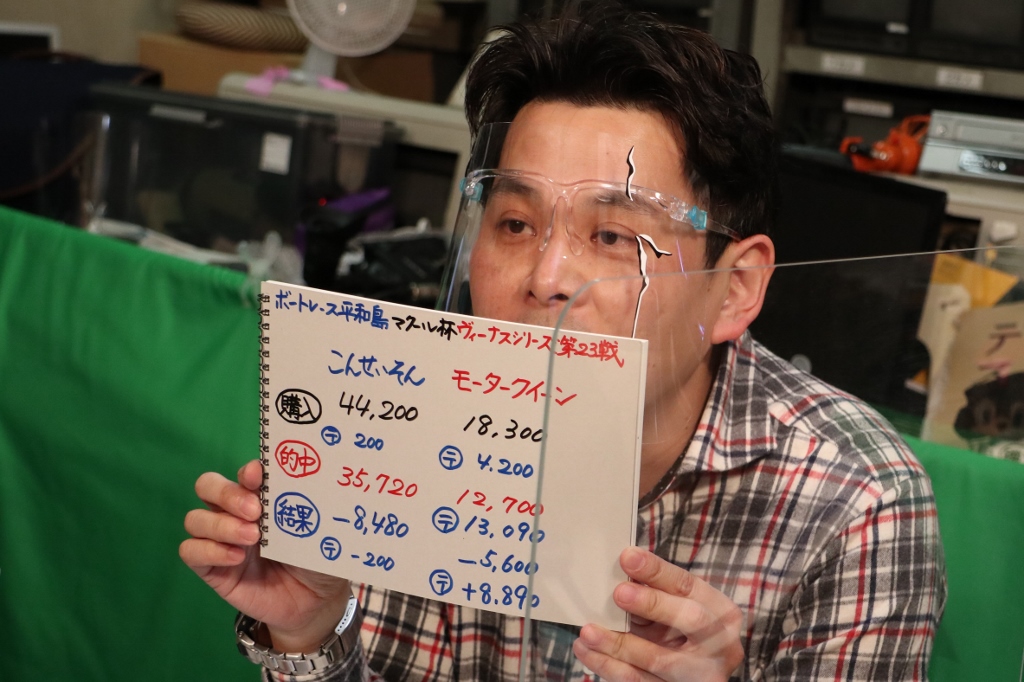 ボートレース平和島 マクール杯ヴィーナスシリーズ第23戦
こんせいそん モータークイーン
購入 44,200 18,300
テ 200 テ 4.200
的中 35,720 12,700
テ 13,090
結果 -8,480 -5,600
テ -200 テ +8.890
テス